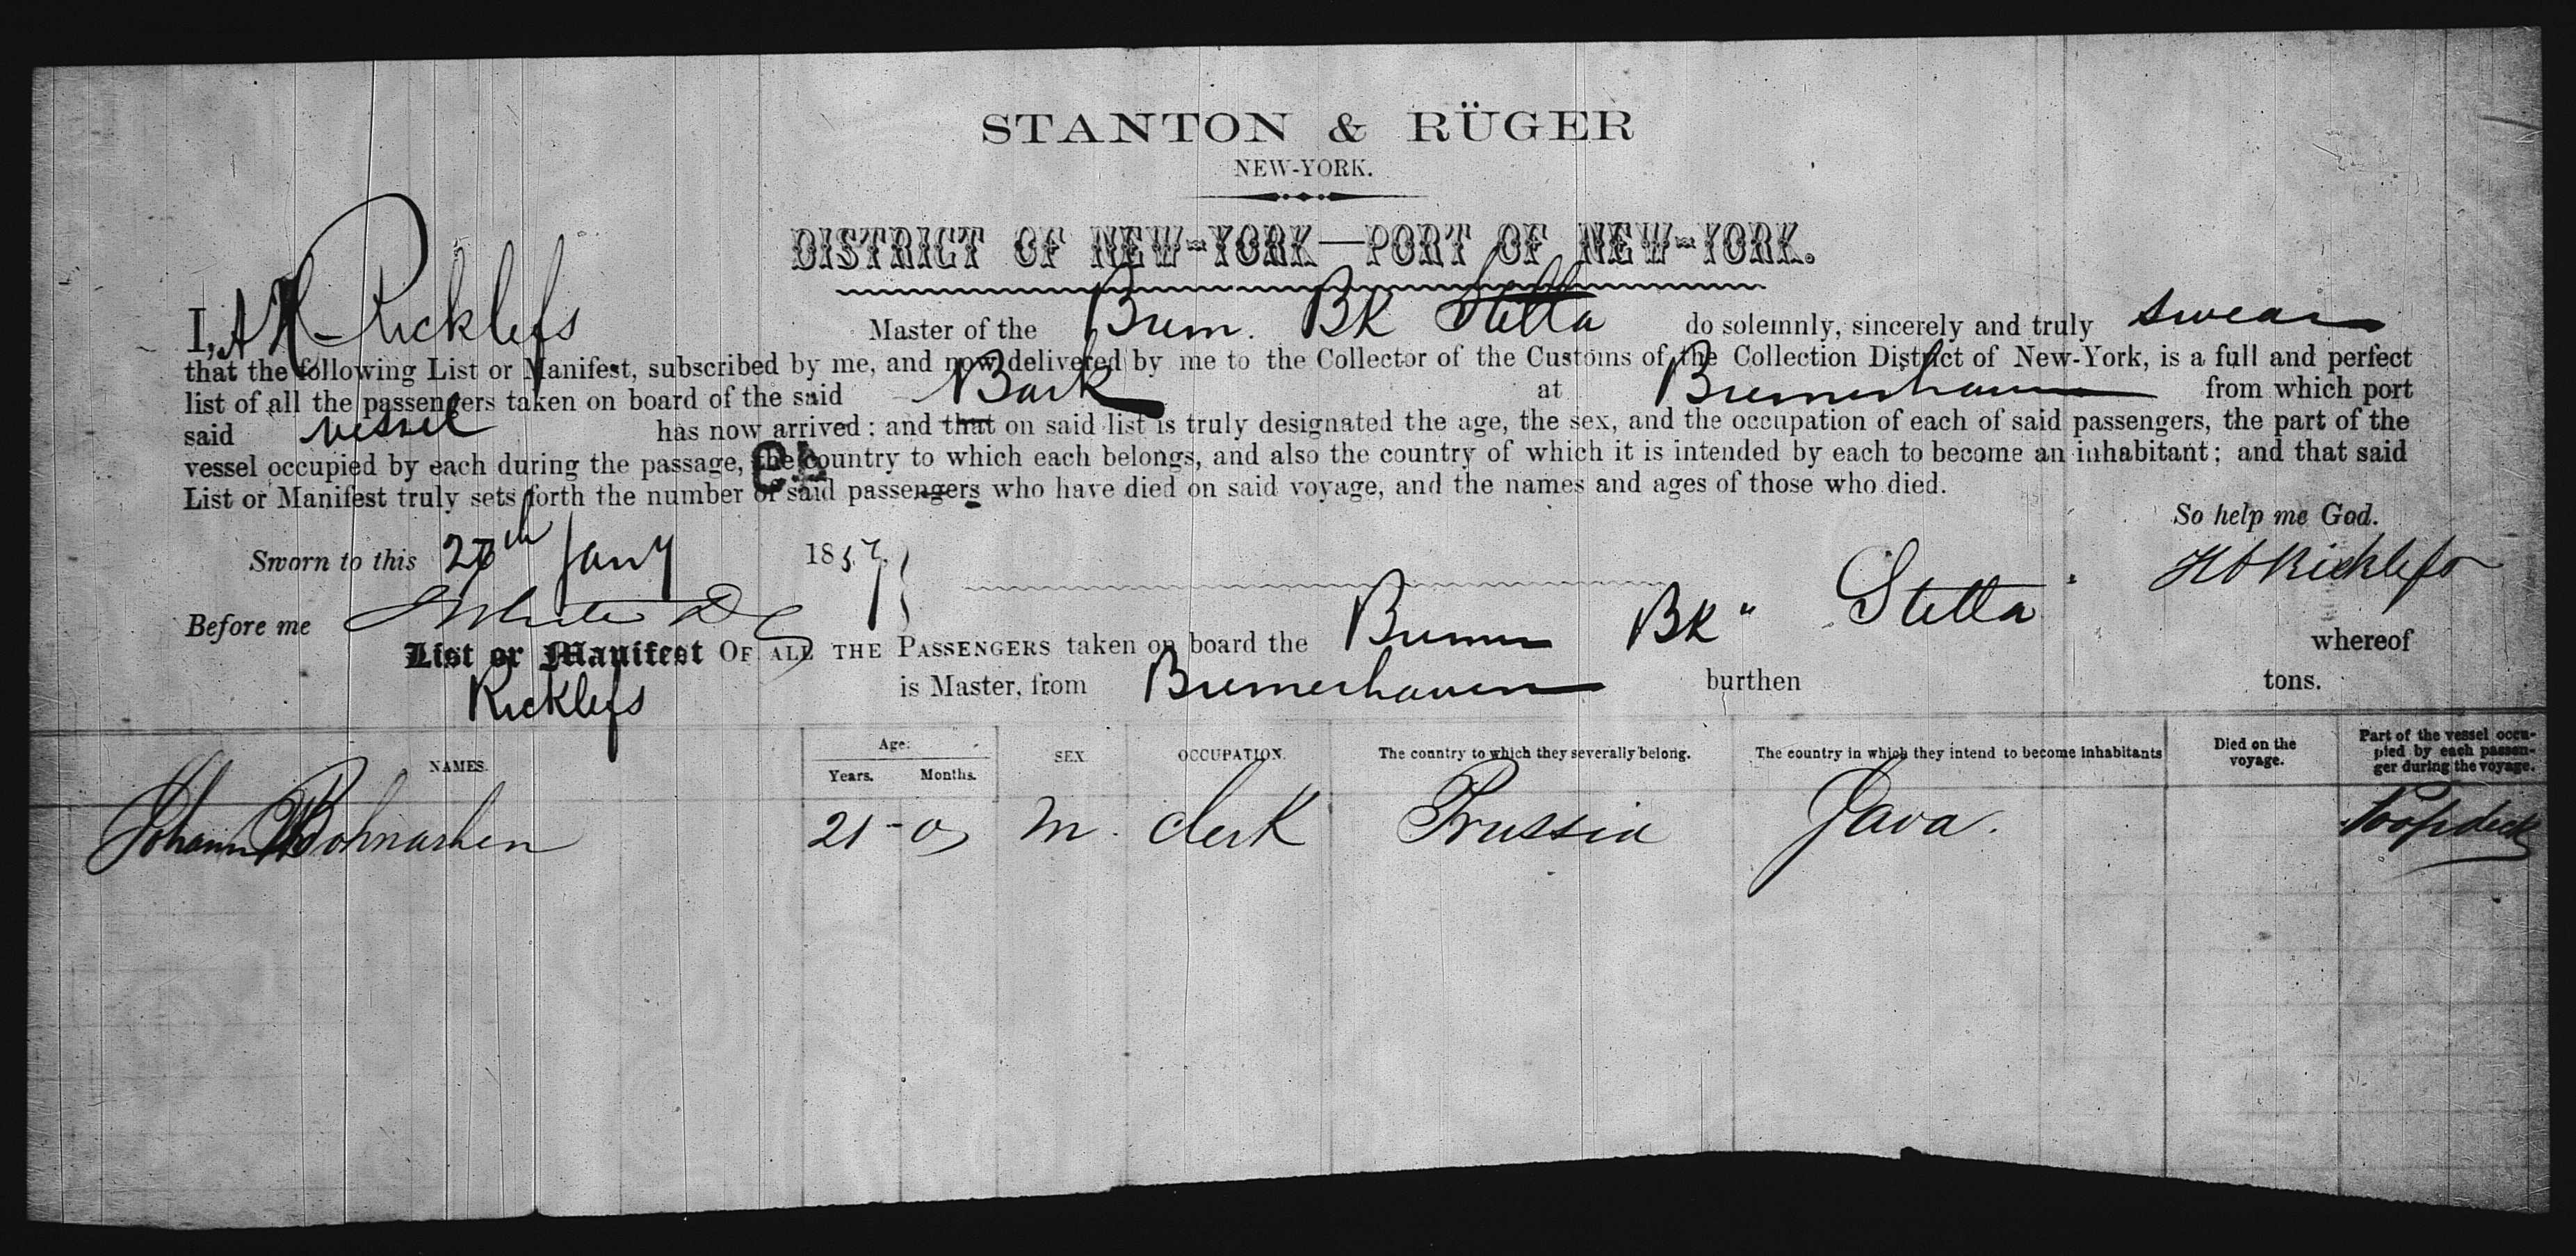 STANTON & RÜGER
NEW-YORK.
DISTRICT OF NEW-YORK—PORT OF NEW-YORK.
I, A H Ricklefs Master of the Brem. Bk Stella do solemnly, sincerely and truly swear
that the following List or Manifest, subscribed by me, and now delivered by me to the Collector of the Customs of the Collection District of New-York, is a full and perfect
list of all the passengers taken on board of the said Bark at Bremerhaven from which port
said vessel has now arrived: and that on said list is truly designated the age, the sex, and the occupation of each of said passengers, the part of the
vessel occupied by each during the passage, the country to which each belongs, and also the country of which it is intended by each to become an inhabitant; and that said
List or Manifest truly sets forth the number of said passengers who have died on said voyage, and the names and ages of those who died.
So help me God.
Sworn to this th Jany 1857. Ricklefs
Before me
List or Manifest OF ALL THE PASSENGERS taken on board the Bremen Bk " Stella whereof
Ricklefs is Master, from Bremerhaven burthen tons.
NAMES. Age: Years. Months. SEX OCCUPATION. The country to which they severally belong. The country in which they intend to become inhabitants Died on the voyage. Part of the vessel occupied by each passenger during the voyage.
Johann 21 - m. clerk Prussia Java. Poopdeck